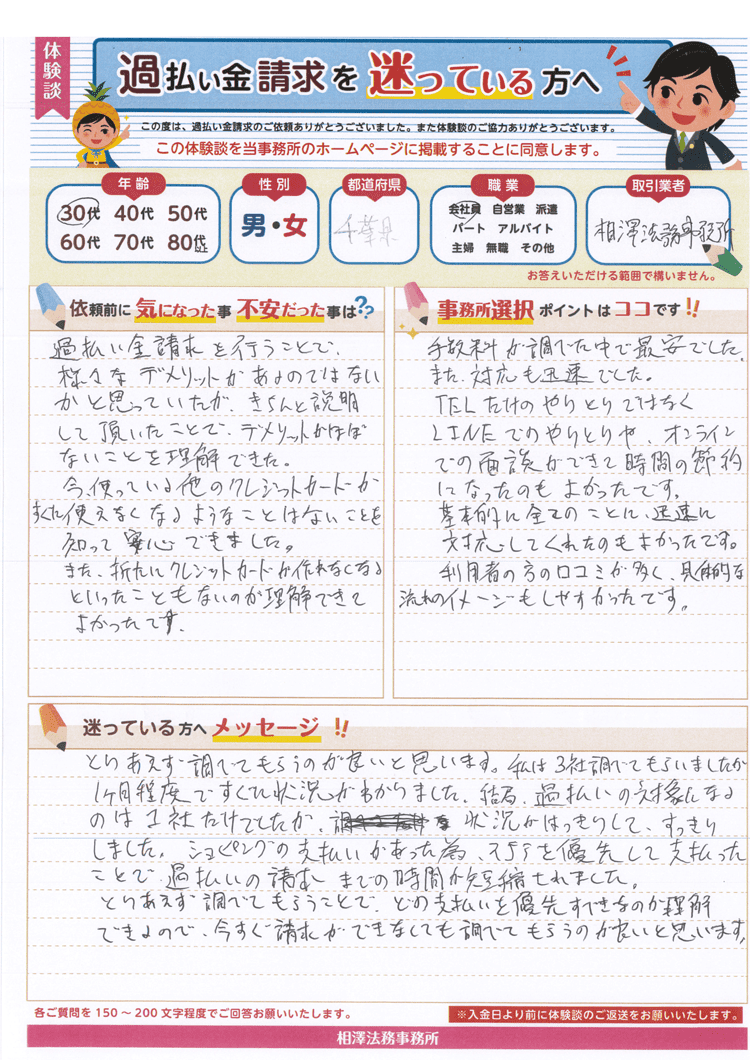 体験談
過払い金請求を迷っている方へ
この度は、過払い金請求のご依頼ありがとうございました。また体験談のご協力ありがとうございます。
この体験談を当事務所のホームページに掲載することに同意します。
年齢
30代 40代 50代
60代 70代 80代以上
性別
男・女
都道府県
千葉県
職業
会社員 自営業 派遣
パート アルバイト
主婦 無職 その他
取引業者
相澤法務事務所
お答えいただける範囲で構いません。
依頼前に気になった事 不安だった事は??
過払い金請求を行うことで、
様々なデメリットがあるのではない
かと思っていたが、きちんと説明
して頂いたことで、デメリットがほぼ
ないことを理解できた。
今、使っている他のクレジットカードが
すぐに使えなくなるようなことはないことを
知って安心できました。
また、新たにクレジットカードが作れなくなる
といったこともないのが理解できて
よかったです。
事務所選択ポイントはココです!!
手数料が調べた中で最安でした。
また、対応も迅速でした。
TELだけのやりとりではなく
LINEでのやりとりや、オンライン
での面談ができて時間の節約
になったのもよかったです。
基本的に全てのことに、迅速に
対応してくれたのもよかったです。
利用者の方の口コミが多く、具体的な
流れのイメージもしやすかったです。
迷っている方へメッセージ!!
とりあえず調べてもらうのが良いと思います。私は3社調べてもらいましたが
1ヶ月程度ですぐに状況がわかりました。結局、過払いの対象になる
のは1社だけでしたが、状況がはっきりして、すっきり
しました。ショッピングの支払いがあった為、そちらを優先して支払った
ことで、過払いの請求までの時間が短縮されました。
とりあえず調べてもらうことで、どの支払いを優先すべきなのか理解
できるので、今すぐ請求ができなくても調べてもらうのが良いと思います。
各ご質問を150~200文字程度でご回答お願いいたします。
※入金日より前に体験談のご返送をお願いいたします。
相澤法務事務所